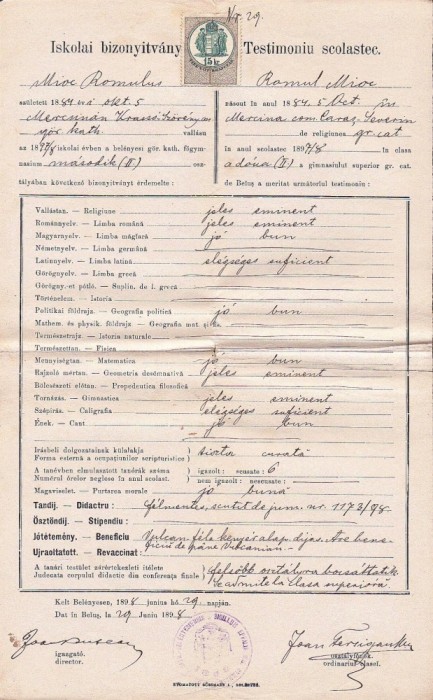 No 29.
Iskolai bizonyitvány
Testimoniu scolastec.
15 kr
Mioc Romulus
Romul Mioc
született 1884 évi okt. 5
născut în anul 1884. 5 Oct. în
Mercsinán Krassó-Szörény m.
Mercina com. Caraș-Severin
gör. kath. vallásu
de religiunea gr. cat
az 1897/8 iskolai évben a belényesi gör. kath. főgym-
în anul scolastic 1897/8 în clasa
nasium második (II) osz-
a dóua (II) a gimnasiului superior gr. cat.
tályában következő bizonyitványt érdemelte :
de Beiuș a meritat următoriul testimoniu :
Vallástan. — Religiune jeles eminent
Románnyelv. — Limba română jeles eminent
Magyarnyelv. — Limba măgiară jó bun
Németnyelv. — Limba germână
Latinnyelv. — Limba latină elégséges suficient
Görögnyelv. — Limba grecă
Görögny.-et pótló. — Suplin. de l. grecă
Történelem. — Istoria
Politikai földrajz. — Geografia politică jó bun
Mathem. és physik. földrajz. — Geografia mat. și fis.
Természetrajz. — Istoria naturale
Természettan. — Fisica
Mennyiségtan. — Matematica jó bun
Rajzoló mértan. — Geometria desemnativă jeles eminent
Bölcsészeti előtan. — Propedeutica filosofică
Tornázás. — Gimnastica jeles eminent
Szépirás. — Caligrafia elégséges suficient
Ének. — Cant jó bun
Irásbeli dolgozatainak külalakja
Forma esternă a ocupațiunilor scripturistice
tiszta curată
A tanévben elmulasztott tanórák száma
Numărul órelor neglese în anul scolast.
igazolt : scusate 6
nem igazolt : nescusate :
Magaviselet. — Purtarea morale jó bună
Tandij. — Didactru : félmentes, scutit de jum. nr. 1173/98
Ösztöndij. — Stipendiu :
Jótétemény. — Beneficiu
Ujraoltatott. — Revaccinat :
A tanári testület zárértekezleti itélete
Judecata corpului didactic din conferența finale
felsőbb osztályra bocsáttatik
se admite la clasa superioră.
Kelt Belényesen, 1898 junius hó 29 napján.
Dat în Beiuș, la 29 Junie 1898
igazgató.
director.
osztályfőnök.
ordinarius clasei.